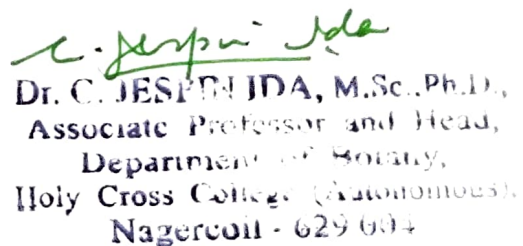 C. Jespin Ida
Dr. C. JESPIN IDA, M.Sc.,Ph.D.,
Associate Professor and Head,
Department of Botany,
Holy Cross College (Autonomous),
Nagercoil - 629 004